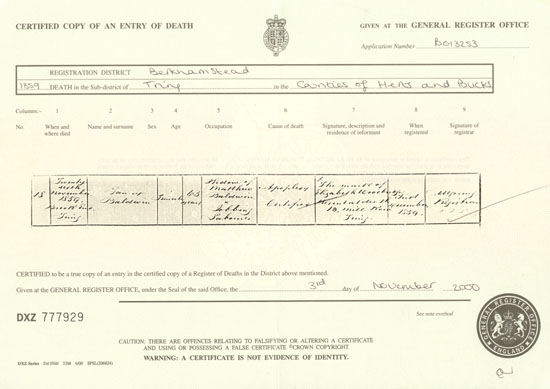 CERTIFIED COPY OF AN ENTRY OF DEATH
GIVEN AT THE GENERAL REGISTER OFFICE
Application Number BG13253
REGISTRATION DISTRICT Berkhamstead
1859 DEATH in the Sub-district of Tring in the Counties of Herts and Bucks
Columns:- 1 2 3 4 5 6 7 8 9
No. When and where died Name and surname Sex Age Occupation Cause of death Signature, description and residence of informant When registered Signature of registrar
18
November
1859
Tring
Baldwin
Widow of
Matthew
Baldwin
Labourer
Apoplexy
Certified
The mark of
Tring
November
1859
Registrar
CERTIFIED to be a true copy of an entry in the certified copy of a Register of Deaths in the District above mentioned.
Given at the GENERAL REGISTER OFFICE, under the Seal of the said Office, the 3rd day of November 2000
DXZ 777929
See note overleaf
CAUTION: THERE ARE OFFENCES RELATING TO FALSIFYING OR ALTERING A CERTIFICATE
AND USING OR POSSESSING A FALSE CERTIFICATE ©CROWN COPYRIGHT
WARNING: A CERTIFICATE IS NOT EVIDENCE OF IDENTITY.
DXZ Series
GENERAL REGISTER OFFICE
ENGLAND